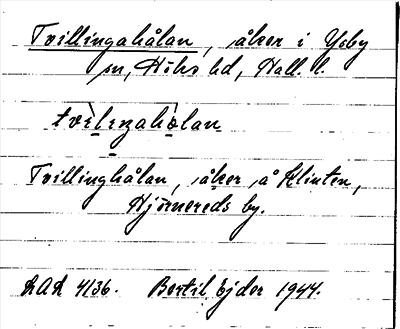 Tvillingahålan, åker i Ysby
sn, Höks hd, Hall. l.
tvilingahålan
Tvillinghålan, åker å Klinten,
Hjörnereds by.
LAL 4136. Bertil Ejder 1944.